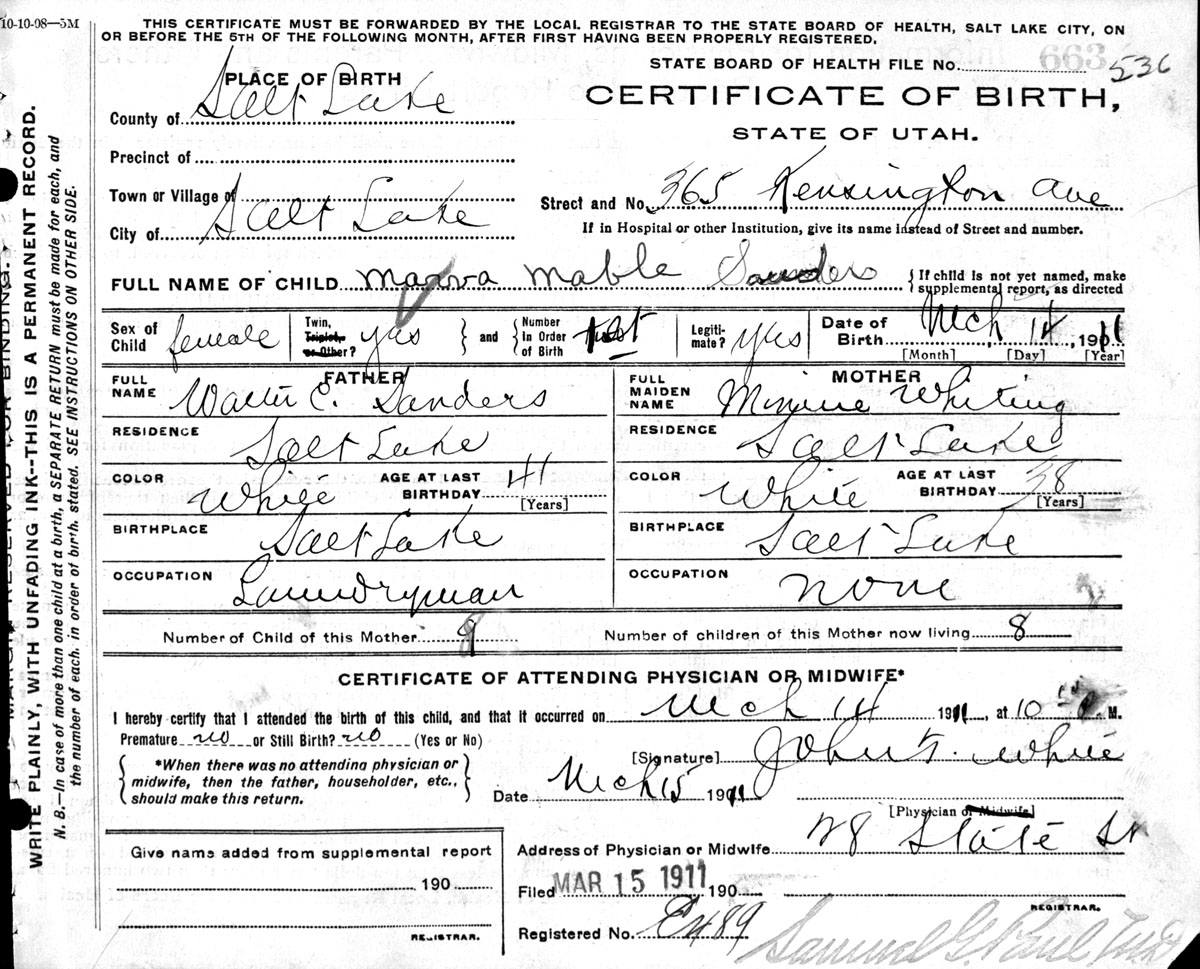 10-10-98—5M
THIS CERTIFICATE MUST BE FORWARDED BY THE LOCAL REGISTRAR TO THE STATE BOARD OF HEALTH, SALT LAKE CITY, ON
OR BEFORE THE 5TH OF THE FOLLOWING MONTH, AFTER FIRST HAVING BEEN PROPERLY REGISTERED.
STATE BOARD OF HEALTH FILE No. 663 536
PLACE OF BIRTH
CERTIFICATE OF BIRTH,
STATE OF UTAH.
County of Salt Lake
Precinct of
Town or Village of
City of Salt Lake
Street and No. 365 Kensington Ave
If in Hospital or other Institution, give its name instead of Street and number.
FULL NAME OF CHILD Marva Mable Saunders
{If child is not yet named, make
supplemental report, as directed
Sex of Child female
Twin, Triplet, or Other? yes } and { Number In Order of Birth 1st
Legiti-mate? yes
Date of Birth Mch 14, 1911
[Month] [Day] [Year]
FATHER
FULL NAME Walter E. Sanders
RESIDENCE Salt Lake
COLOR White AGE AT LAST BIRTHDAY 41 [Years]
BIRTHPLACE Salt Lake
OCCUPATION Laundryman
MOTHER
FULL MAIDEN NAME Minnie Whiting
RESIDENCE Salt Lake
COLOR White AGE AT LAST BIRTHDAY 38 [Years]
BIRTHPLACE Salt Lake
OCCUPATION none
Number of Child of this Mother Number of children of this Mother now living 8
CERTIFICATE OF ATTENDING PHYSICIAN OR MIDWIFE*
I hereby certify that I attended the birth of this child, and that it occurred on Mch 14 1911, at 10 M.
Premature no or Still Birth? no (Yes or No)
{ *When there was no attending physician or
midwife, then the father, householder, etc.,
should make this return. }
[Signature] John F. White
Date Mch 15 1911
[Physician or Midwife]
Address of Physician or Midwife 28 State St
Give name added from supplemental report
190
REGISTRAR.
Filed MAR 15 1911 190
REGISTRAR.
Registered No. E489
Samuel G. Paul MD
MARGIN RESERVED FOR BINDING.
WRITE PLAINLY, WITH UNFADING INK--THIS IS A PERMANENT RECORD.
N. B.—In case of more than one child at a birth, a SEPARATE RETURN must be made for each, and
the number of each. in order of birth. stated. SEE INSTRUCTIONS ON OTHER SIDE.